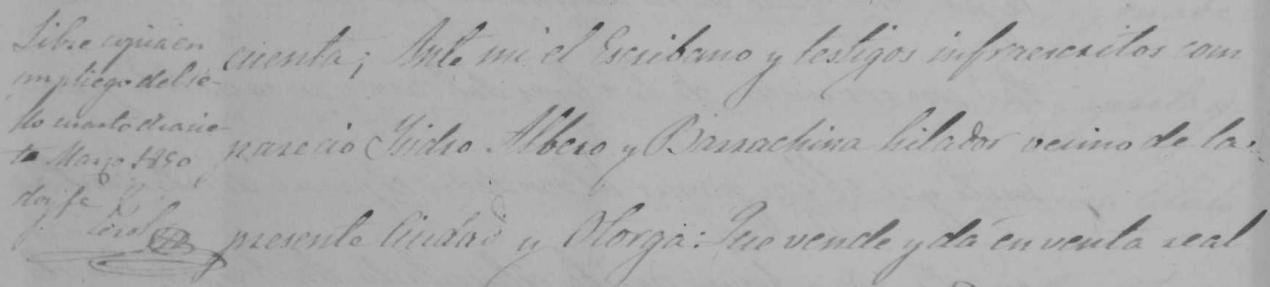 Libre copia en
un pliego del se-
llo cuarto dia sie-
te Marzo 1850,
doy fe
cuenta; Ante mi el Escribano y testigos infraescritos com
parecio Isidro Albero y Barrachina hilador vecino de la
presente Ciudad y Otorga: Que vende y dá en venta real